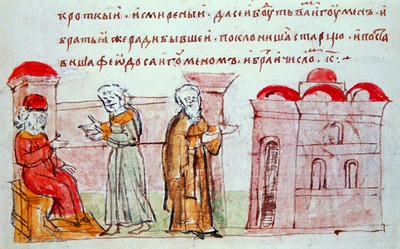 кроткыи . исмиреныи . да сеи бꙋть ваⷨ игꙋмен . и
братьꙗ же ради бывшеи . поклонишаⷭ старцю . и поста
виша феѡдосаигоуменомъ . и браⷮи числоⷨ . к҃ . +